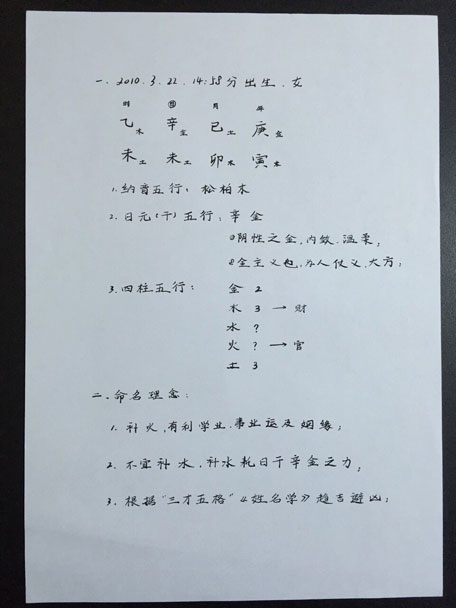 一、2010.3.22.14:58分出生、女
时 日 月 年
乙木 辛金 己土 庚金
未土 未土 卯木 寅木
1.纳音五行：松柏木
2.日元(干)五行：辛金
①阴性之金、内敛、温柔；
②金主义气、为人仗义、大方；
3.四柱五行： 金 2
木 3 → 财
水 ?
火 ? → 官
土 3
二、命名理念：
1.补火、有利学业、事业运及姻缘；
2.不宜补水、补水耗日干辛金之力；
3.根据"三才五格"《姓名学》趋吉避凶；